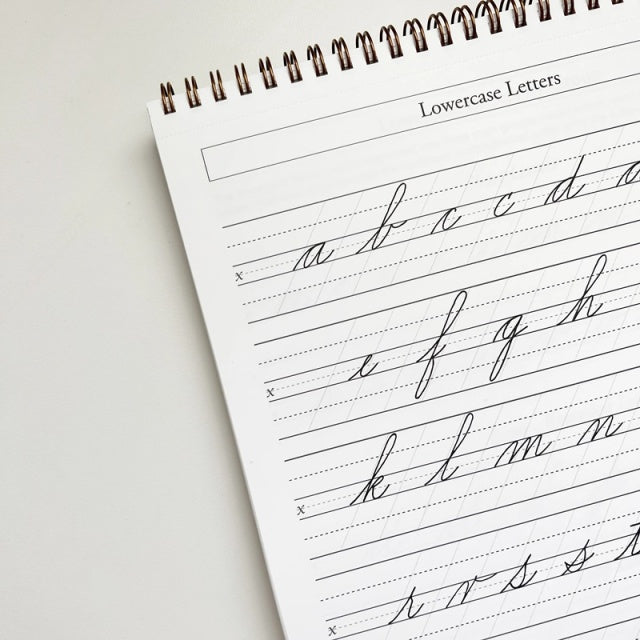 Lowercase Letters
x a b c c d
x e f g h
x k l m n
x r r s s t